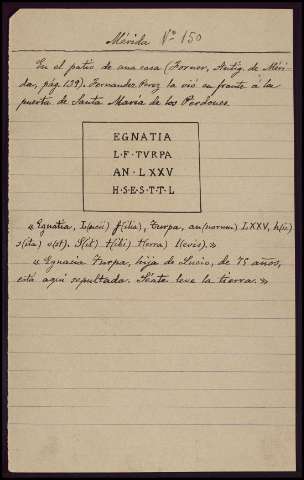 Mérida Nº 150
En el patio de una casa (Forner, Antig. de Méri-
da, pág. 139). Fernandez Perez la vió en frente á la
puerta de Santa Maria de los Perdones.
EGNATIA
L·F·TVRPA
AN·LXXV
H·S·E·S·T·T·L
«Egnatia, L(ucii) f(ilia), Turpa, an(norum) LXXV, h(ic)
s(ita) e(st). S(it) t(ibi) t(erra) l(evis).»
«Egnacia Turpa, hija de Lucio, de 75 años,
está aquí sepultada. Séate leve la tierra.»